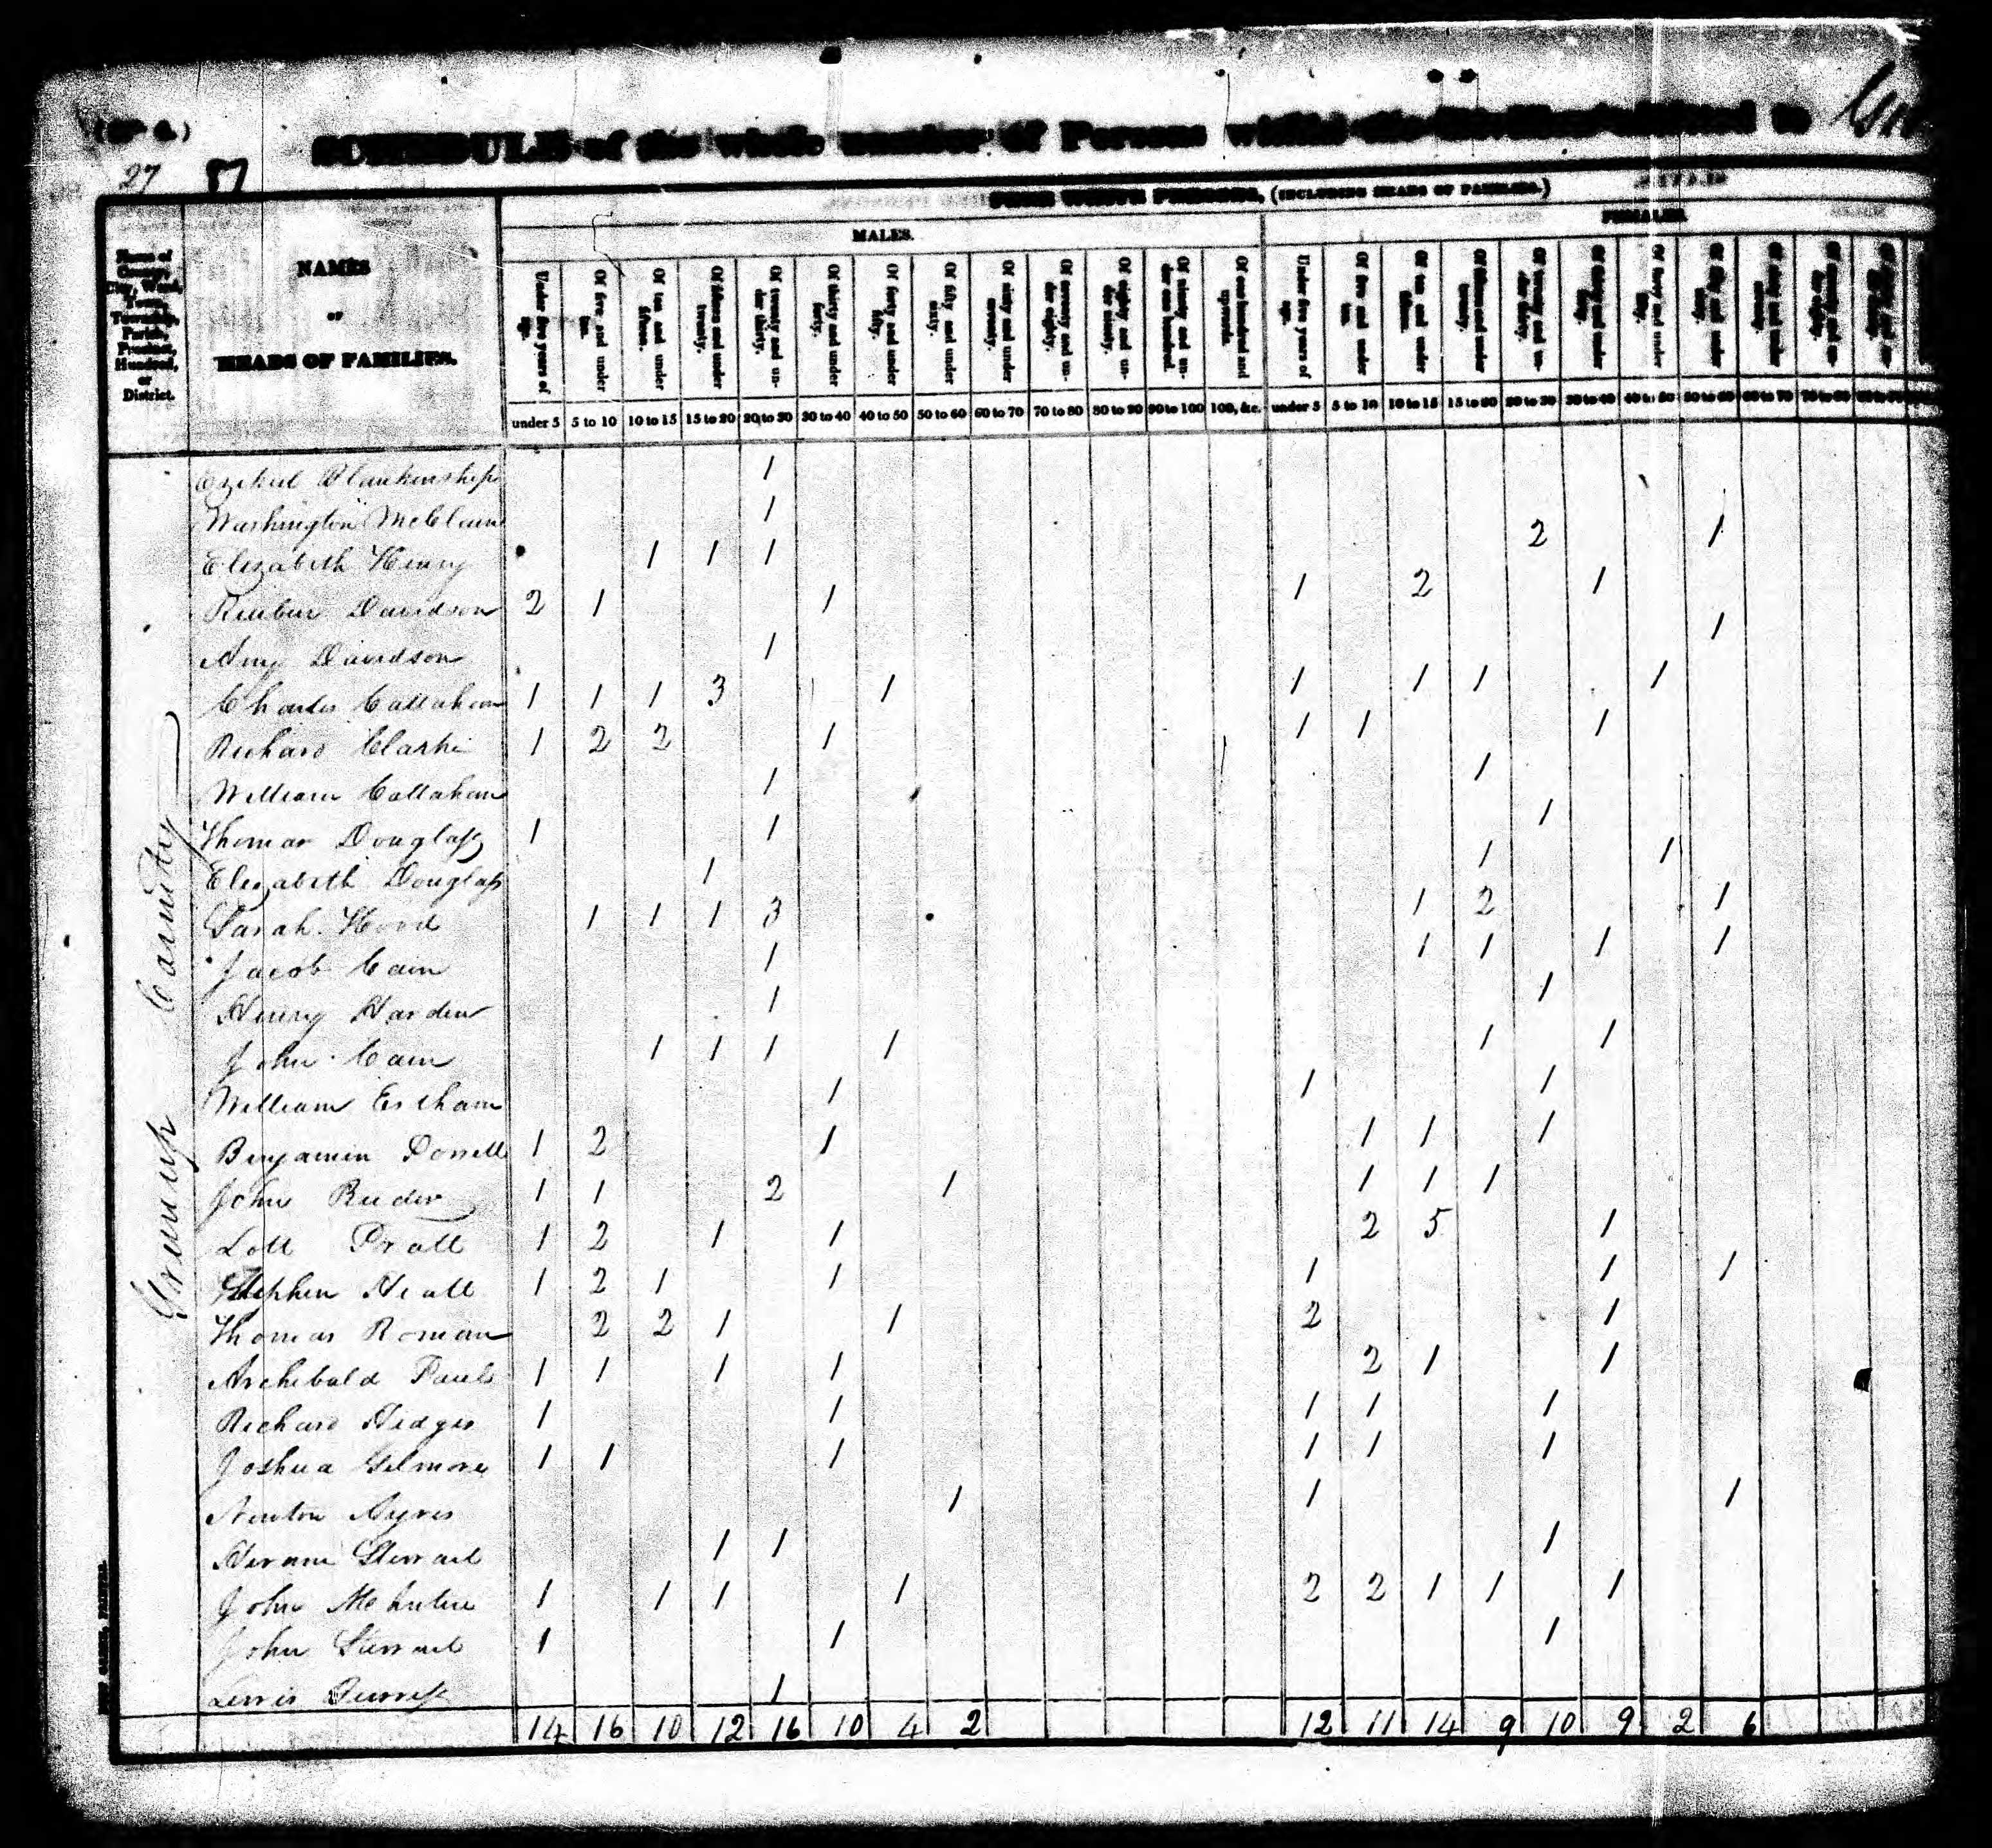 (N° 4.)
27 57
SCHEDULE of the whole number of Persons within the Division allotted to
FREE WHITE PERSONS, (INCLUDING HEADS OF FAMILIES.)
MALES. FEMALES.
Name of County, City, Ward, Town, Township, Parish, Precinct, Hundred, or District.
NAMES
OF
HEADS OF FAMILIES.
Under five years of age. Of five and under ten. Of ten and under fifteen. Of fifteen and under twenty. Of twenty and under thirty. Of thirty and under forty. Of forty and under fifty. Of fifty and under sixty. Of sixty and under seventy. Of seventy and under eighty. Of eighty and under ninety. Of ninety and under one hundred. Of one hundred and upwards. Under five years of age. Of five and under ten. Of ten and under fifteen. Of fifteen and under twenty. Of twenty and under thirty. Of thirty and under forty. Of forty and under fifty. Of fifty and under sixty. Of sixty and under seventy. Of seventy and under eighty.
under 5 5 to 10 10 to 15 15 to 20 20 to 30 30 to 40 40 to 50 50 to 60 60 to 70 70 to 80 80 to 90 90 to 100 100, &c. under 5 5 to 10 10 to 15 15 to 20 20 to 30 30 to 40 40 to 50 50 to 60 60 to 70 70 to 80
Greenup County
Ezekiel Blankenship 1
Washington McClain 1
Elizabeth Henry 1 1 1 2 1
Reuben Davidson 2 1 1 1 2 1
Amy Davidson 1 1
Charles Callahan 1 1 1 3 1 1 1 1 1
Richard Clarke 1 2 2 1 1 1 1
William Callahan 1 1
Thomas Douglass 1 1 1
Elizabeth Douglass 1 1 1
Sarah Hood 1 1 1 3 1 2 1
Jacob Cain 1 1 1 1 1
Henry Harden 1 1
John Cain 1 1 1 1 1 1
William Estham 1 1 1
Benjamin 1 2 1 1 1 1
John Reeder 1 1 2 1 1 1 1
Lott Pratt 1 2 1 1 2 5 1
Stephen Heath 1 2 1 1 1 1 1
Thomas Roman 2 2 1 1 2 1
Archibald Paul 1 1 1 1 2 1 1
Richard Hedges 1 1 1 1 1
Joshua Gilmore 1 1 1 1 1 1
Newton Ayres 1 1 1
Hiram Stewart 1 1 1
John McIntire 1 1 1 1 2 2 1 1 1
John Stewart 1 1 1
Lewis 1
14 16 10 12 16 10 4 2 12 11 14 9 10 9 2 6